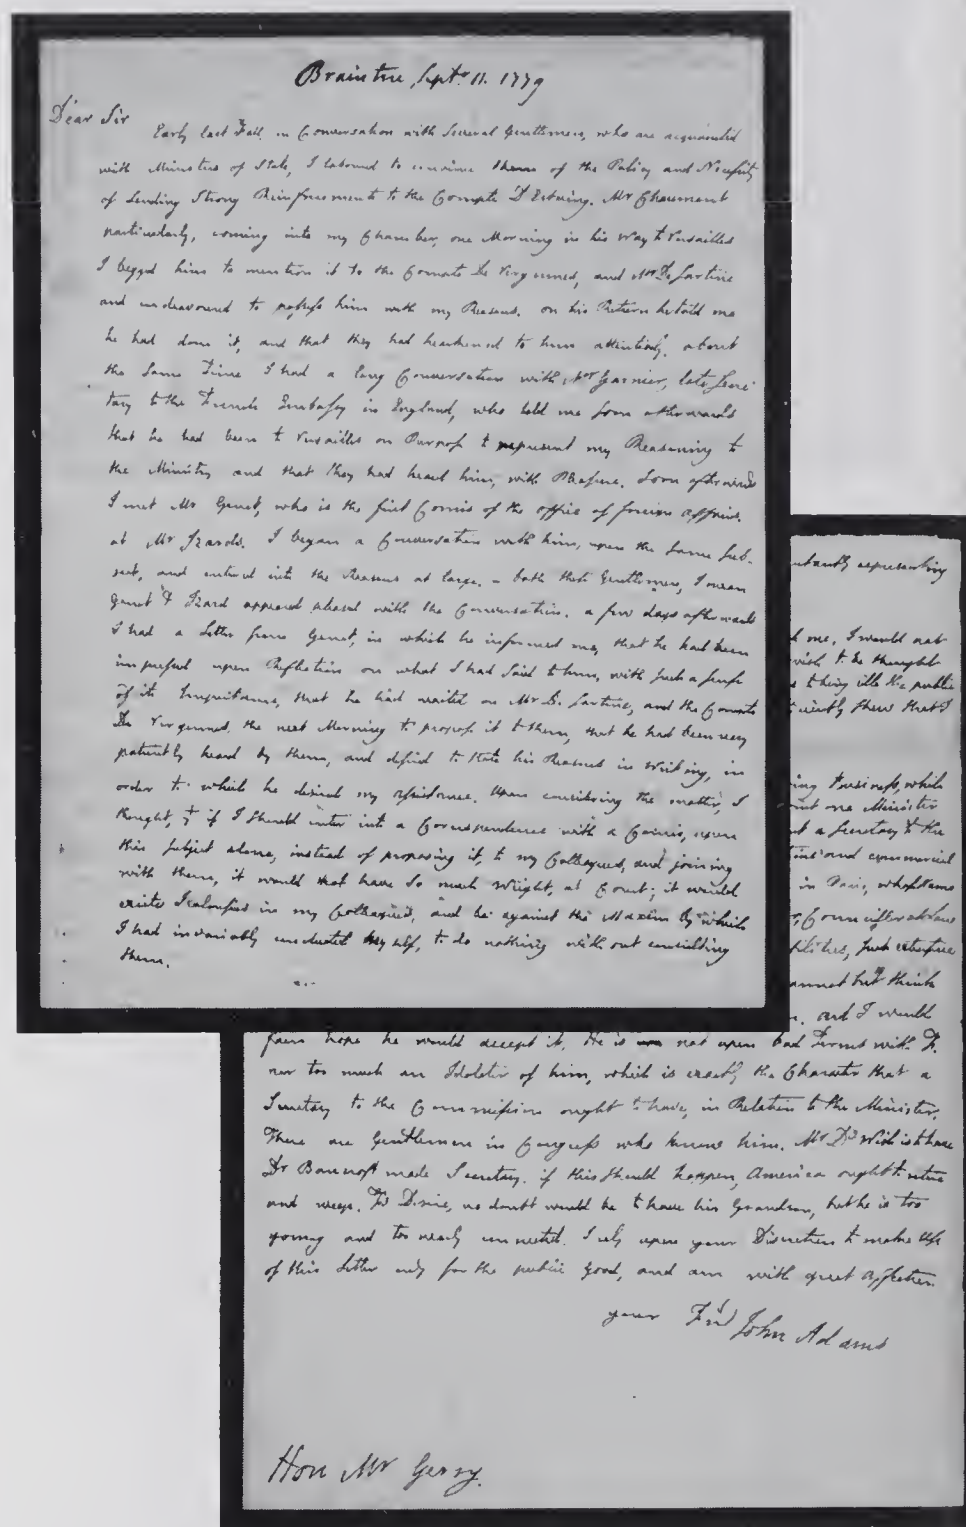 Braintree, Septr. 11. 1779
Dear Sir
Early last Fall, in Conversation with Several Gentlemen, who are acquainted
with Ministers of State, I laboured to convince them of the Policy and Necessity
of Sending Strong Reinforcements to the Compte D'Estaing. Mr Chaumont
particularly, coming into my Chamber, one Morning in his Way to Versailles
I begged him to mention it to the Comte De Vergennes, and Mr De Sartine
and endeavoured to possess him with my Reasons. on his Return he told me
he had done it, and that they had hearkened to him attentively. about
the Same Time I had a long Conversation with Mr Garnier, late Secre-
tary to the French Embassy in England, who told me soon afterwards
that he had been to Versailles on Purpose to represent my Reasoning to
the Ministry and that they had heard him, with Pleasure. Soon afterwards
I met Mr Genet, who is the first Comis of the office of foreign affairs,
at Mr Izards. I began a Conversation with him, upon the Same Sub-
ject, and entered into the Reasons at large. – both these Gentlemen, I mean
Genet & Izard appeared pleased with the Conversation. a few days afterwards
I had a Letter from Genet, in which he informed me, that he had been
impressed upon Reflection on what I had Said to him, with such a sense
of its Importance, that he had waited on Mr De Sartine, and the Comte
De Vergennes, the next Morning to propose it to them, that he had been very
patiently heard by them, and desired to state his Reasons in Writing, in
order to which he desired my assistance. Upon considering the matter, I
thought, yt if I should enter into a Correspondence with a Comis, upon
this subject alone, instead of proposing it, to my Colleagues, and joining
with them, it would not have So much Weight, at Court; it would
excite Jealousies in my Colleagues, and be against the Maxim by which
I had invariably conducted my self, to do nothing without consulting
them.
representing
me, I would not
wish to be thought
thing ills the public
shew that I
business, which
one Minister
a Secretary to the
and commercial
in Paris, whose Name
such extensive
cannot but think
and I would
fain hope he would accept it. He is not upon bad Terms with F.
nor too much an Idolater of him, which is exactly the Character that a
Secretary to the Commission ought to have, in Relation to the Minister.
There are Gentlemen in Congress who know him. Mr D's Wish is to have
Dr Bancroft made Secretary. if this should happen, America ought to
and weep. Fs Desire, no doubt would be to have his Grandson, but he is too
young and too nearly connected. I rely upon your Discretion to make Use
of this Letter only for the public Good, and am with great affection
your Frd
John Adams
Hon Mr Gerry.